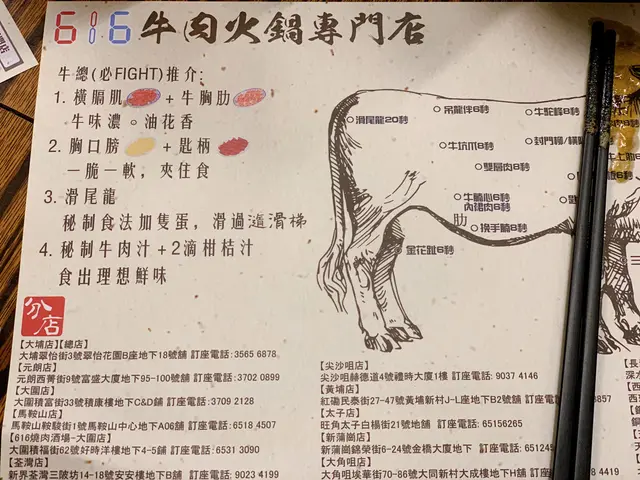 616 牛肉火鍋專門店
牛總(必FIGHT)推介:
1. 橫膈肌 + 牛胸肋
牛味濃。油花香
2. 胸口膀 + 匙柄
一脆一軟，夾住食
3. 滑尾龍
秘制食法加隻蛋，滑過隨滑梯
4. 秘制牛肉汁+2滴柑桔汁
食出理想鮮味
滑尾龍20秒
吊龍伴6秒
牛駝峰8秒
牛坑爪8秒
雙層肉8秒
牛腩心6秒
內裙肉6秒
肋
挽手腩8秒
金花𦟌6秒
分店
【大埔店】【總店】
大埔翠怡街3號翠怡花園B座地下18號舖 訂座電話:3565 6878
【元朗店】
元朗西菁街9號富盛大廈地下95-100號舖 訂座電話:3702 0899
【大圍店】
大圍積富街33號積康樓地下C&D舖 訂座電話:3709 2128
【馬鞍山店】
馬鞍山鞍駿街1號馬鞍山中心地下A06舖 訂座電話:6518 4507
【616燒肉酒場-大圍店】
大圍積福街62號好時洋樓地下4-5鋪 訂座電話:6531 3090
【荃灣店】
新界荃灣三陂坊14-18號安安樓地下B舖 訂座電話: 9023 4199
【尖沙咀店】
尖沙咀赫德道4號禮時大廈1樓 訂座電話: 9037 4146
【黃埔店】
紅磡民泰街27-47號黃埔新村J-L座地下B2號舖
【太子店】
旺角太子白楊街21號地下 訂座電話: 65156265
【新蒲崗店】
新蒲崗錦榮街6-24號金橋大廈地下
【大角咀店】
大角咀埃華街70-86號大同新村大成樓地下H舖